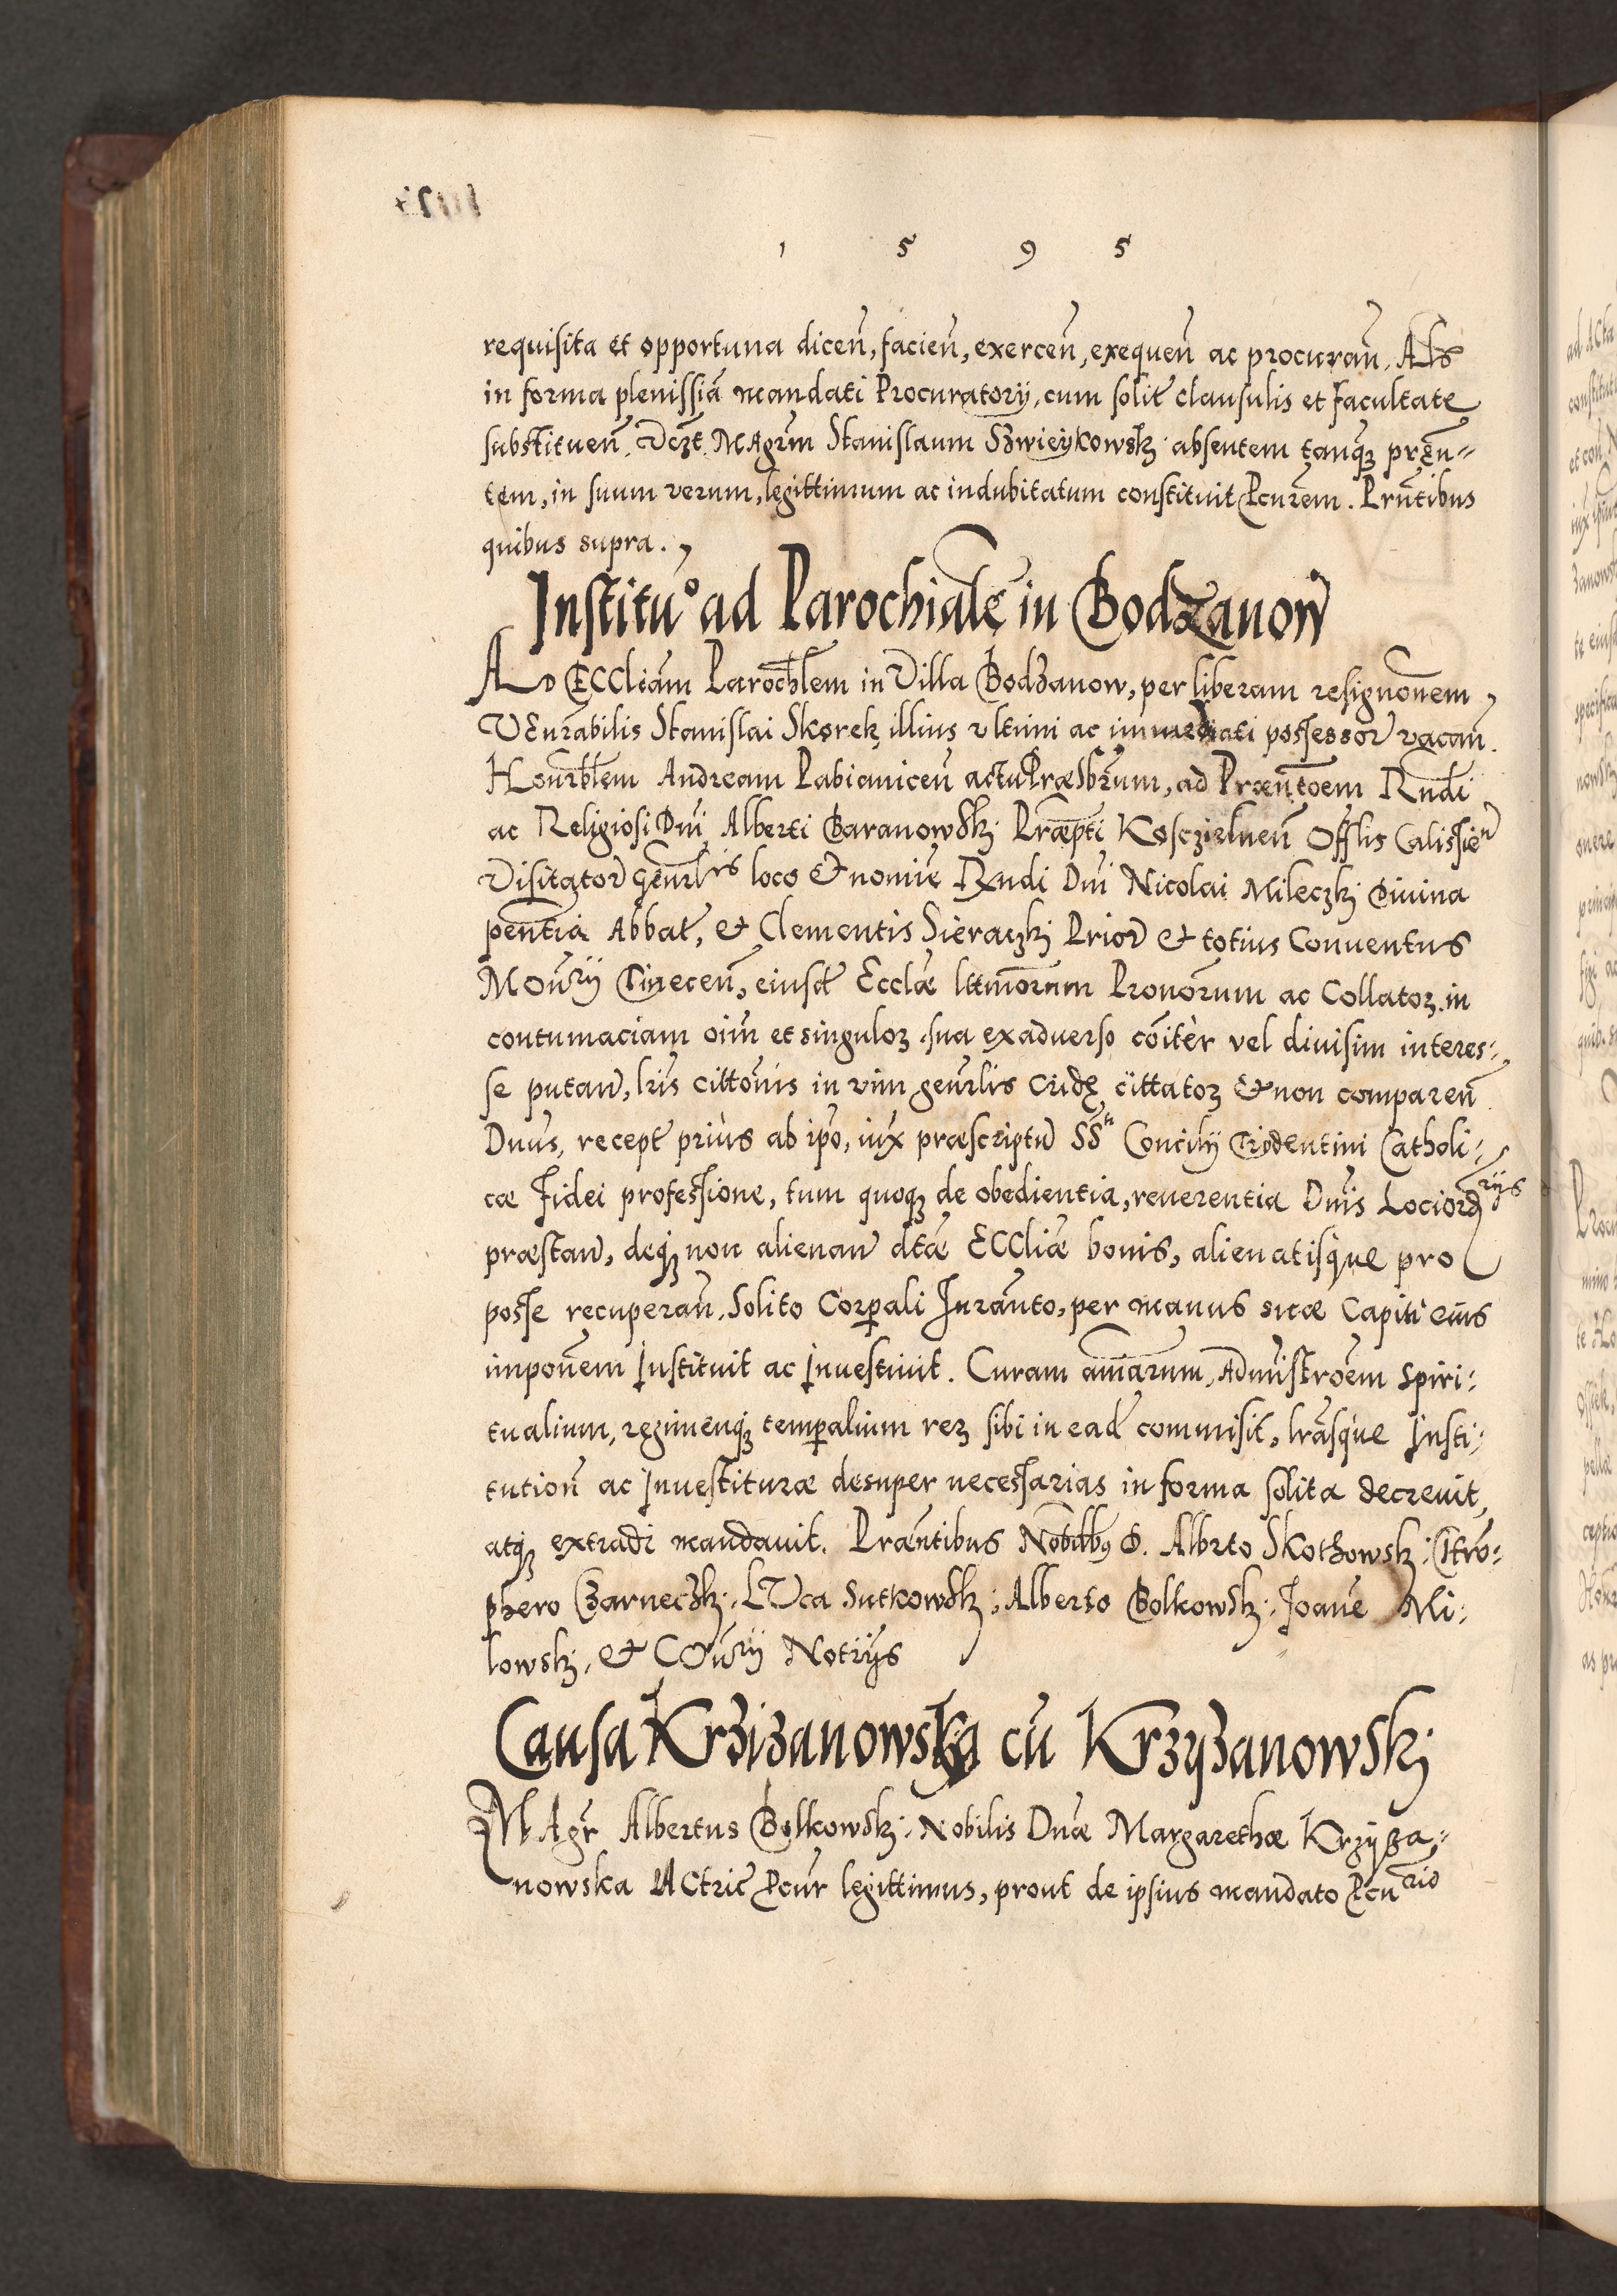 1 5 9 5
requisita et opportuna dicen̄, facien̄, exercen̄, exequen̄ ac procuran̄. Als
in forma plenissiā mandati Procuratorij, cum solit clausulis et facultate
substituen̄. Magrm̄ Stanislaum Szwieykowskj absentem tanqꝫ prēn=
tem, in suum verum, legittimum ac indubitatum constituit Pcurēm. Prn̄tibus
quibus supra.
Institu° ad Parochialē in Bodzanow
Ad Eccliam Parochlem in Villa Bodzanow, per liberam resignōnem
Venrabilis Stanislai Skorek illius vltimi ac immediati possessor vacan̄.
Honrblem Andream Pabianicen̄ actu Præsbrum, ad Præntōem Rndi
ac Religiosi Dnī Alberti Baranowskj Præpti Kosczielnen̄ Offlis Calissien̄
Visitator Genrlis loco et nomīe Rndi Dnī Nicolai Mileczkj Diuina
pēntia Abbat, et Clementis Sieraczkj Prior et totius Conuentus
Monrij Tinecen̄, eiusd Ecclæ lttmorum Pronōrum ac Collatoꝝ. in
contumaciam oīm et singuloꝝ sua exaduerso cōiter vel diuisim interes=
se putan̄, lrīs cittōnis in vim genrlis cittatoꝝ et non comparen̄
Dnūs, recept prius ab ipo, iux præscriptū SSti Concilij Tridentini Catholi=
cæ fidei professione, tum quoqꝫ de obedientia, reuerentia Dnīs Lociordrijs
præstan̄, deqꝫ non alienan̄ dtæ Eccliæ bonis, alienatisque pro
posse recuperan̄. Solito Corpali Iuramto, per manus suæ Capiti eius
imponem Instituit ac Inuestiuit. Curam aīarum, Admistrōem Spiri=
tualium, regimenqꝫ tempalium reꝝ sibi in ead commisit, lrāsque Insti=
tution̄ ac Inuestituræ desuper necessarias in forma solita decreuit,
atqꝫ extradi mandauit. Præntibus Nobilibꝰ D. Albrto Skothowskj, Chro=
phero Czarneczkj, Luca Sutkowskj, Alberto Bolkowskj, Joane Mi=
lowskj, et Conrij Notrijs
Causa Krzizanowska cū Krzyzanowskj
Magr Albertus Bolkowskj, Nobilis Dnæ Margarethæ Krzyza=
nowska Actric Pcur legittimus, prout de ipsius mandato Pcurio